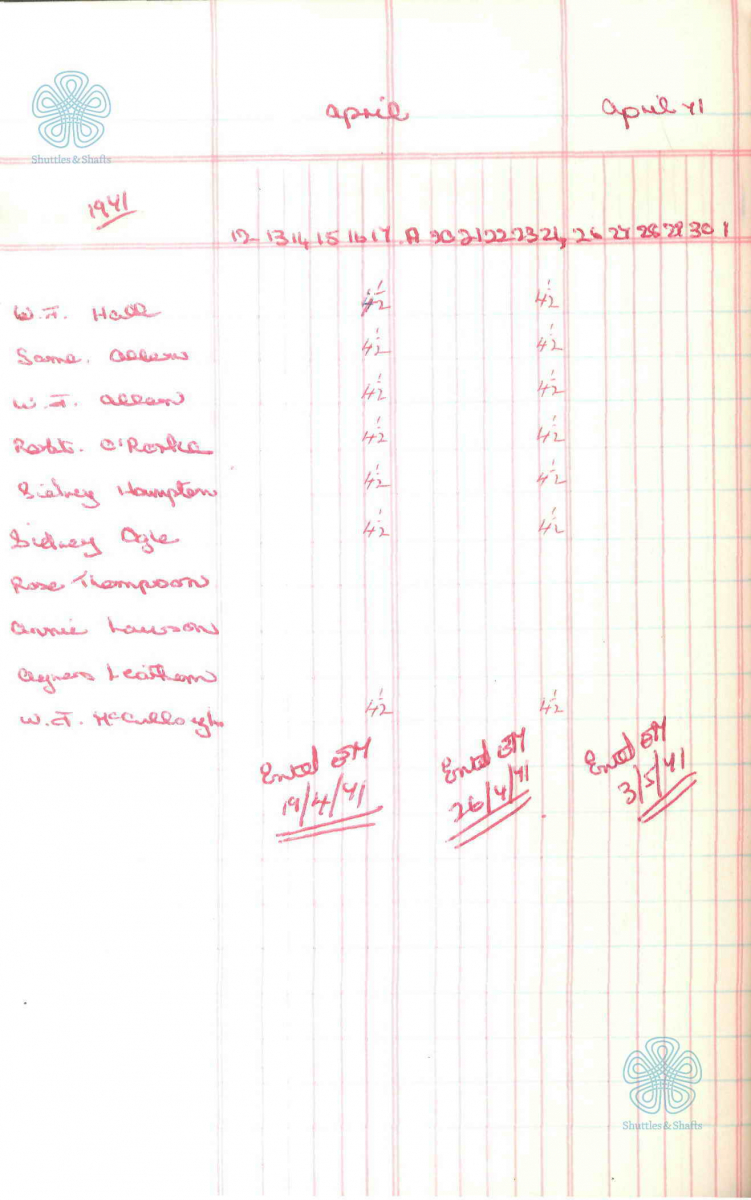 april april 41
Shuttles & Shafts
1941
12 13 14 15 16 17 19 20 21 22 23 24 26 27 28 29 30 1
W.J. Hall 4½ 4½
Saml. Allen 4½ 4½
W.J. Allen 4½ 4½
Robt. O'Rorke 4½ 4½
Sidney Hampton 4½ 4½
Sidney Ogle 4½ 4½
Rose Thompson
Annie Lawson
Agness Leathem
W.J. McCullough 4½ 4½
Entd EM Entd EM Entd EM
19/4/41 26/4/41 3/5/41
Shuttles & Shafts